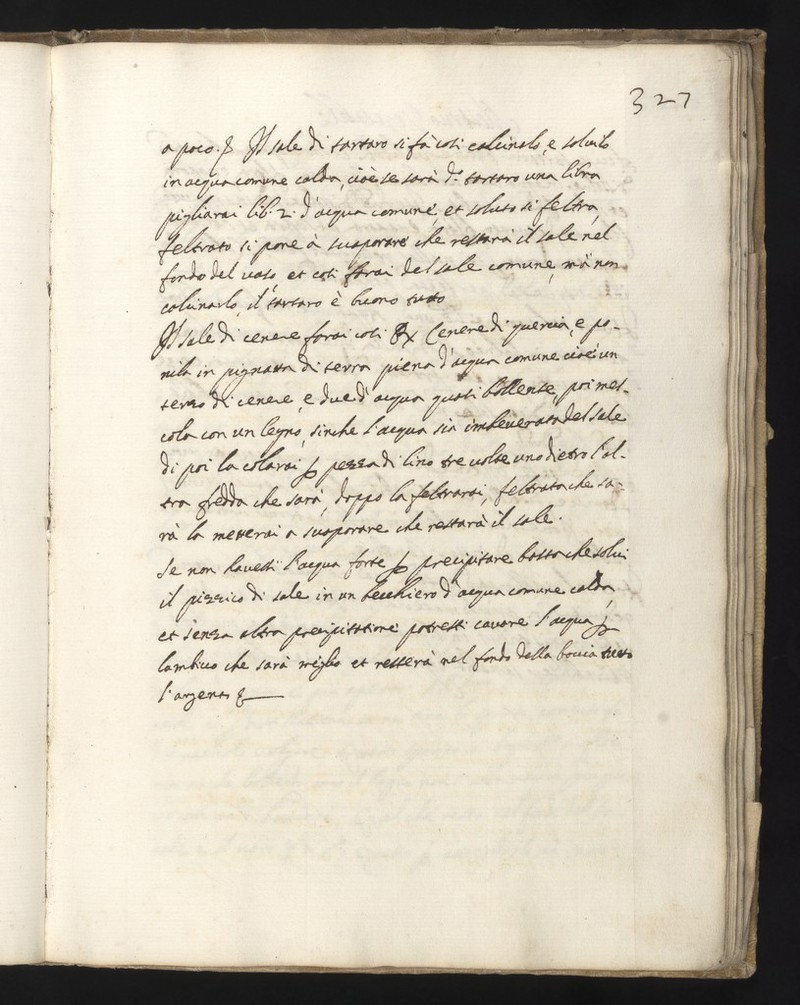 327
a poco. & Il sale di tartaro si fà così calcinalo, e solvilo
in acqua comune calda, cioè se sarà d.º tartaro una libra
pigliarai lib. 2. d'acqua comune, et soluto si feltra,
feltrato si pone à suaporare che restarà il sale nel
fondo del uaso, et così farai del sale comune, mà non
calcinarlo, il tartaro è buono tutto
Il sale di cenere farai così ℞ Cenere di quercia, e po-
nila in pignatta di terra piena d'acqua comune cioè un
terzo di cenere, e due d'acqua quasi bollente, poi mes-
cola con un legno, sinche l'acqua sia imbeuerata del sale
di poi la colarai ꝑ pezza di lino tre uolte uno dietro l'al-
tra fredda che sarà, doppo la feltrarai, feltrata che sa-
rà la metterai a suaporare che restarà il sale.
Se non hauesti l'acqua forte ꝑ precipitare basta che solui
il pizzico di sale in un bechiero d'acqua comune calda,
et senza altra precipitatione potresti cauare l'acqua ꝑ
lambico che sarà meglio et resterà nel fondo della boccia tutto
l'argento &